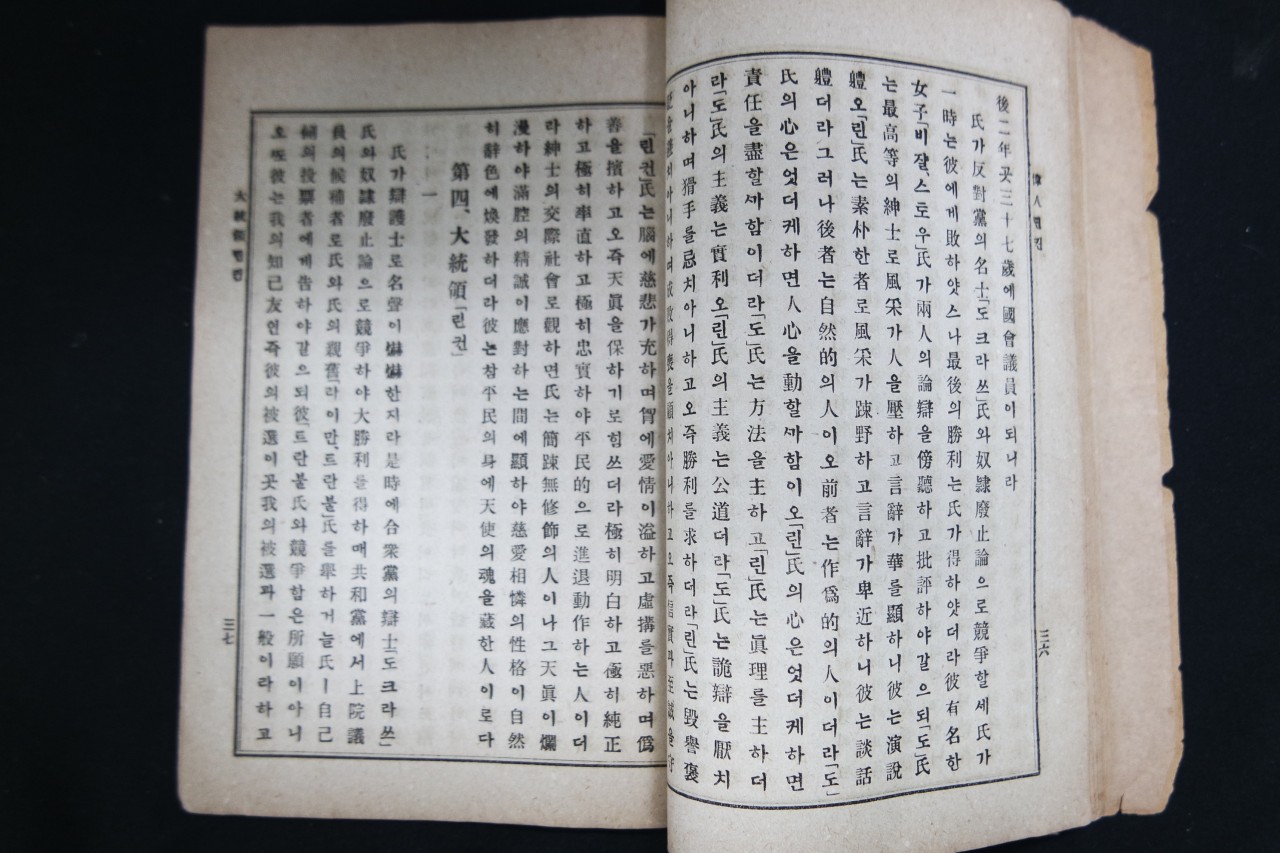 偉人린컨
後二年곳三十七歲에國會議員이되니라
氏가反對黨의名士「도크라쓰」氏와奴隷廢止論으로競爭할세氏가
一時는彼에게敗하얏스나最後의勝利는氏가得하얏더라彼有名한
女子「비잘、스토우」氏가兩人의論辯을傍聽하고批評하야갈으되「도」氏
는最高等의紳士로風采가人을壓하고言辭가華를顯하니彼는演說
軆오「린」氏는素朴한者로風采가踈野하고言辭가卑近하니彼는談話
軆더라그러나後者는自然的의人이오前者는作爲的의人이더라「도」
氏의心은엇더케하면人心을動할까함이오「린」氏의心은엇더케하면
責任을盡할까함이더라「도」氏는方法을主하고「린」氏는眞理를主하더
라「도」氏의主義는實利오「린」氏의主義는公道더라「도」氏는詭辯을厭치
아니하며猾手를忌치아니하고오즉勝利를求하더라「린」氏는毁譽褒
三六
「린컨」氏는腦에慈悲가充하며胷에愛情이溢하고虛搆를惡하며僞
善을擯하고오즉天眞을保하기로힘쓰더라極히明白하고極히純正
하고極히率直하고極히忠實하야平民的으로進退動作하는人이더
라紳士의交際社會로觀하면氏는簡踈無修飾의人이나그天眞이爛
漫하야滿腔의精誠이應對하는間에顯하야慈愛相憐의性格이自然
히辭色에煥發하더라彼는참平民의身에天使의魂을藏한人이로다
第四、大統領「린컨」
一
氏가辯護士로名聲이嚇嚇한지라是時에合衆黨의辯士「도크라쓰」
氏와奴隷廢止論으로競爭하야大勝利를得하매共和黨에서上院議
員의候補者로氏와氏의親舊「라이만、트란불」氏를擧하거늘氏ㅣ自己
의投票者에게告하야갈으되彼「트란불」氏와競爭함은所願이아니
오彼는我의知己友인즉彼의被選이곳我의被選과一般이라하고
大統領린컨
三七